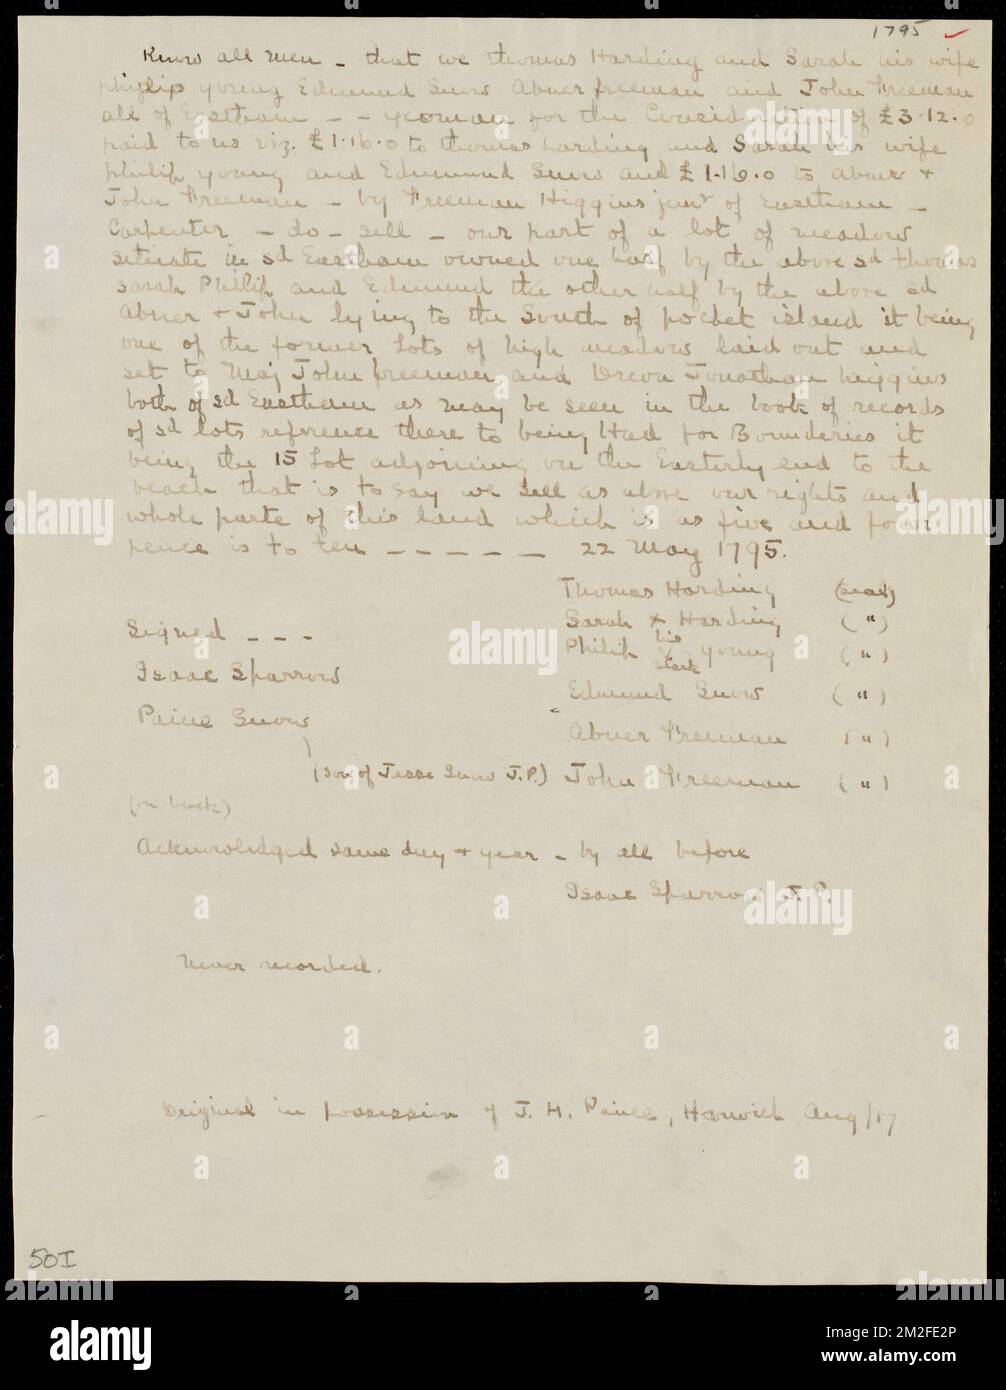 1795
Know all men - that we Thomas Harding and Sarah his wife
Philip young Edmund Snow Abner freeman and John Freeman
all of Eastham - - yeoman for the Consideration of £3.12.0
paid to us viz. £1.16.0 to thomas harding and Sarah his wife
Philip young and Edmund Snow and £1.16.0 to abner +
John Freeman - by Freeman Higgins junr of Eastham -
Carpenter - do - sell - our part of a lot of meadow
situate in sd Eastham owned one half by the above sd thomas
Sarah Phillip and Edmund the other half by the above sd
Abner + John lying to the South of pocket island it being
one of the former Lots of high meadow laid out and
set to Maj John freeman and Decon Jonathan higgins
both of sd Eastham as may be seen in the book of records
of sd lots reference there to being Had for Bounderies it
being the 15 Lot adjoining on the Easterly end to the
beach that is to say we sell as above our rights and
whole parte of this land which is as five and four
pence is to ten - - - - - 22 May 1795.
Thomas Harding (seal)
Sarah x Harding (")
Signed - - -
Philip his mark young (")
Isaac Sparrow
Edmund Snow (")
Paine Snow
Abner Freeman (")
(Son of Jesse Snow J.P.) John Freeman (")
(on back)
Acknowledged same day + year - by all before
Isaac Sparrow J. P.
Never recorded.
Original in possession of J. H. Paine, Harwich Aug/17
50I
alamy
Image ID: 2M2FE2P
www.alamy.com